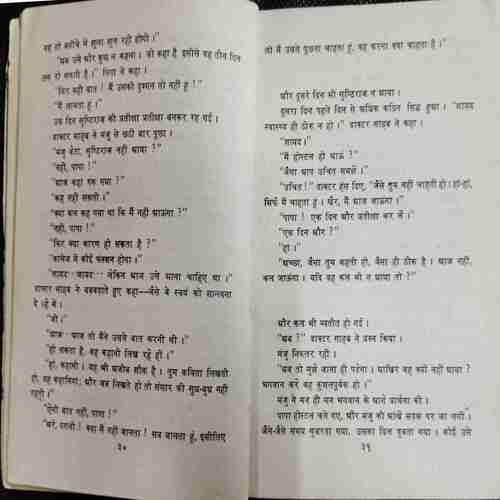 वह तो बगीचे में झूला झूल रही होगी।"
"अब उसे और दुख न कहना। जो कहा है इसीसे वह तीन दिन
तक रो सकती है।" पिता ने कहा।
"फिर वही बात! मैं उसकी दुश्मन तो नहीं हूं!"
"मैं जानता हूं।"
उस दिन सृष्टिराज की प्रतीक्षा प्रतीक्षा बनकर रह गई।
डाक्टर साहब ने मंजु से छठी बार पूछा।
"मंजु बेटा, सृष्टिराज नहीं आया?"
"नहीं, पापा!"
"आज कहां रुक गया?"
"कह नहीं सकती।"
"क्या कल कह गया था कि मैं नहीं आऊंगा?"
"नहीं, पापा!"
"फिर क्या कारण हो सकता है?"
"कालेज में कोई फंक्शन होगा।"
"शायद···शायद··· लेकिन आज उसे आना चाहिए था।"
डाक्टर साहब ने बड़बड़ाते हुए कहा—जैसे वे स्वयं को सान्त्वना
दे रहे थे।
"जी।"
"आज···आज तो मैंने उससे बात करनी थी।"
"हो सकता है, वह कहानी लिख रहे हों।"
"हां, कहानी। वह भी अजीब शौक है। तुम कविता लिखती
हो, वह कहानियां; और जब लिखते हो तो संसार की सुध-बुध नहीं
रहती।"
"ऐसी बात नहीं, पापा!"
"अरे, पगली! क्या मैं नहीं जानता! सब जानता हूं, इसीलिए
३०
तो मैं उससे पूछना चाहता हूं, वह करना क्या चाहता है।"
और दूसरे दिन भी सृष्टिराज न आया।
दूसरा दिन पहले दिन से अधिक कठिन सिद्ध हुआ। "शायद
स्वास्थ्य ही ठीक न हो।" डाक्टर साहब ने कहा।
"शायद।"
"मैं होस्टल हो आऊं?"
"जैसा आप उचित समझें।"
"उचित!" डाक्टर हंस दिए, "जैसे तुम नहीं चाहतीं हो! हां-हां,
सिर्फ मैं चाहता हूं। खैर, मैं आज जाऊंगा।"
"पापा! एक दिन और प्रतीक्षा कर लें।"
"एक दिन और?"
"हां।"
"अच्छा, जैसा तुम कहती हो, वैसा ही ठीक है। आज नहीं,
कल जाऊंगा। यदि वह कल भी न आया तो?"
और कल भी व्यतीत हो गई।
"अब?" डाक्टर साहब ने प्रश्न किया।
मंजु निरुत्तर रही।
"अब तो मुझे जाना ही पड़ेगा। आखिर वह क्यों नहीं आया?
भगवान करे वह कुशलपूर्वक हो।"
मंजु ने मन ही मन भगवान के आगे प्रार्थना की।
पापा होस्टल चले गए, और मंजु की आंखें सड़क पर जा लगीं।
जैसे-जैसे समय गुजरता गया, उसका दिल डूबता गया। कोई उसे
३१